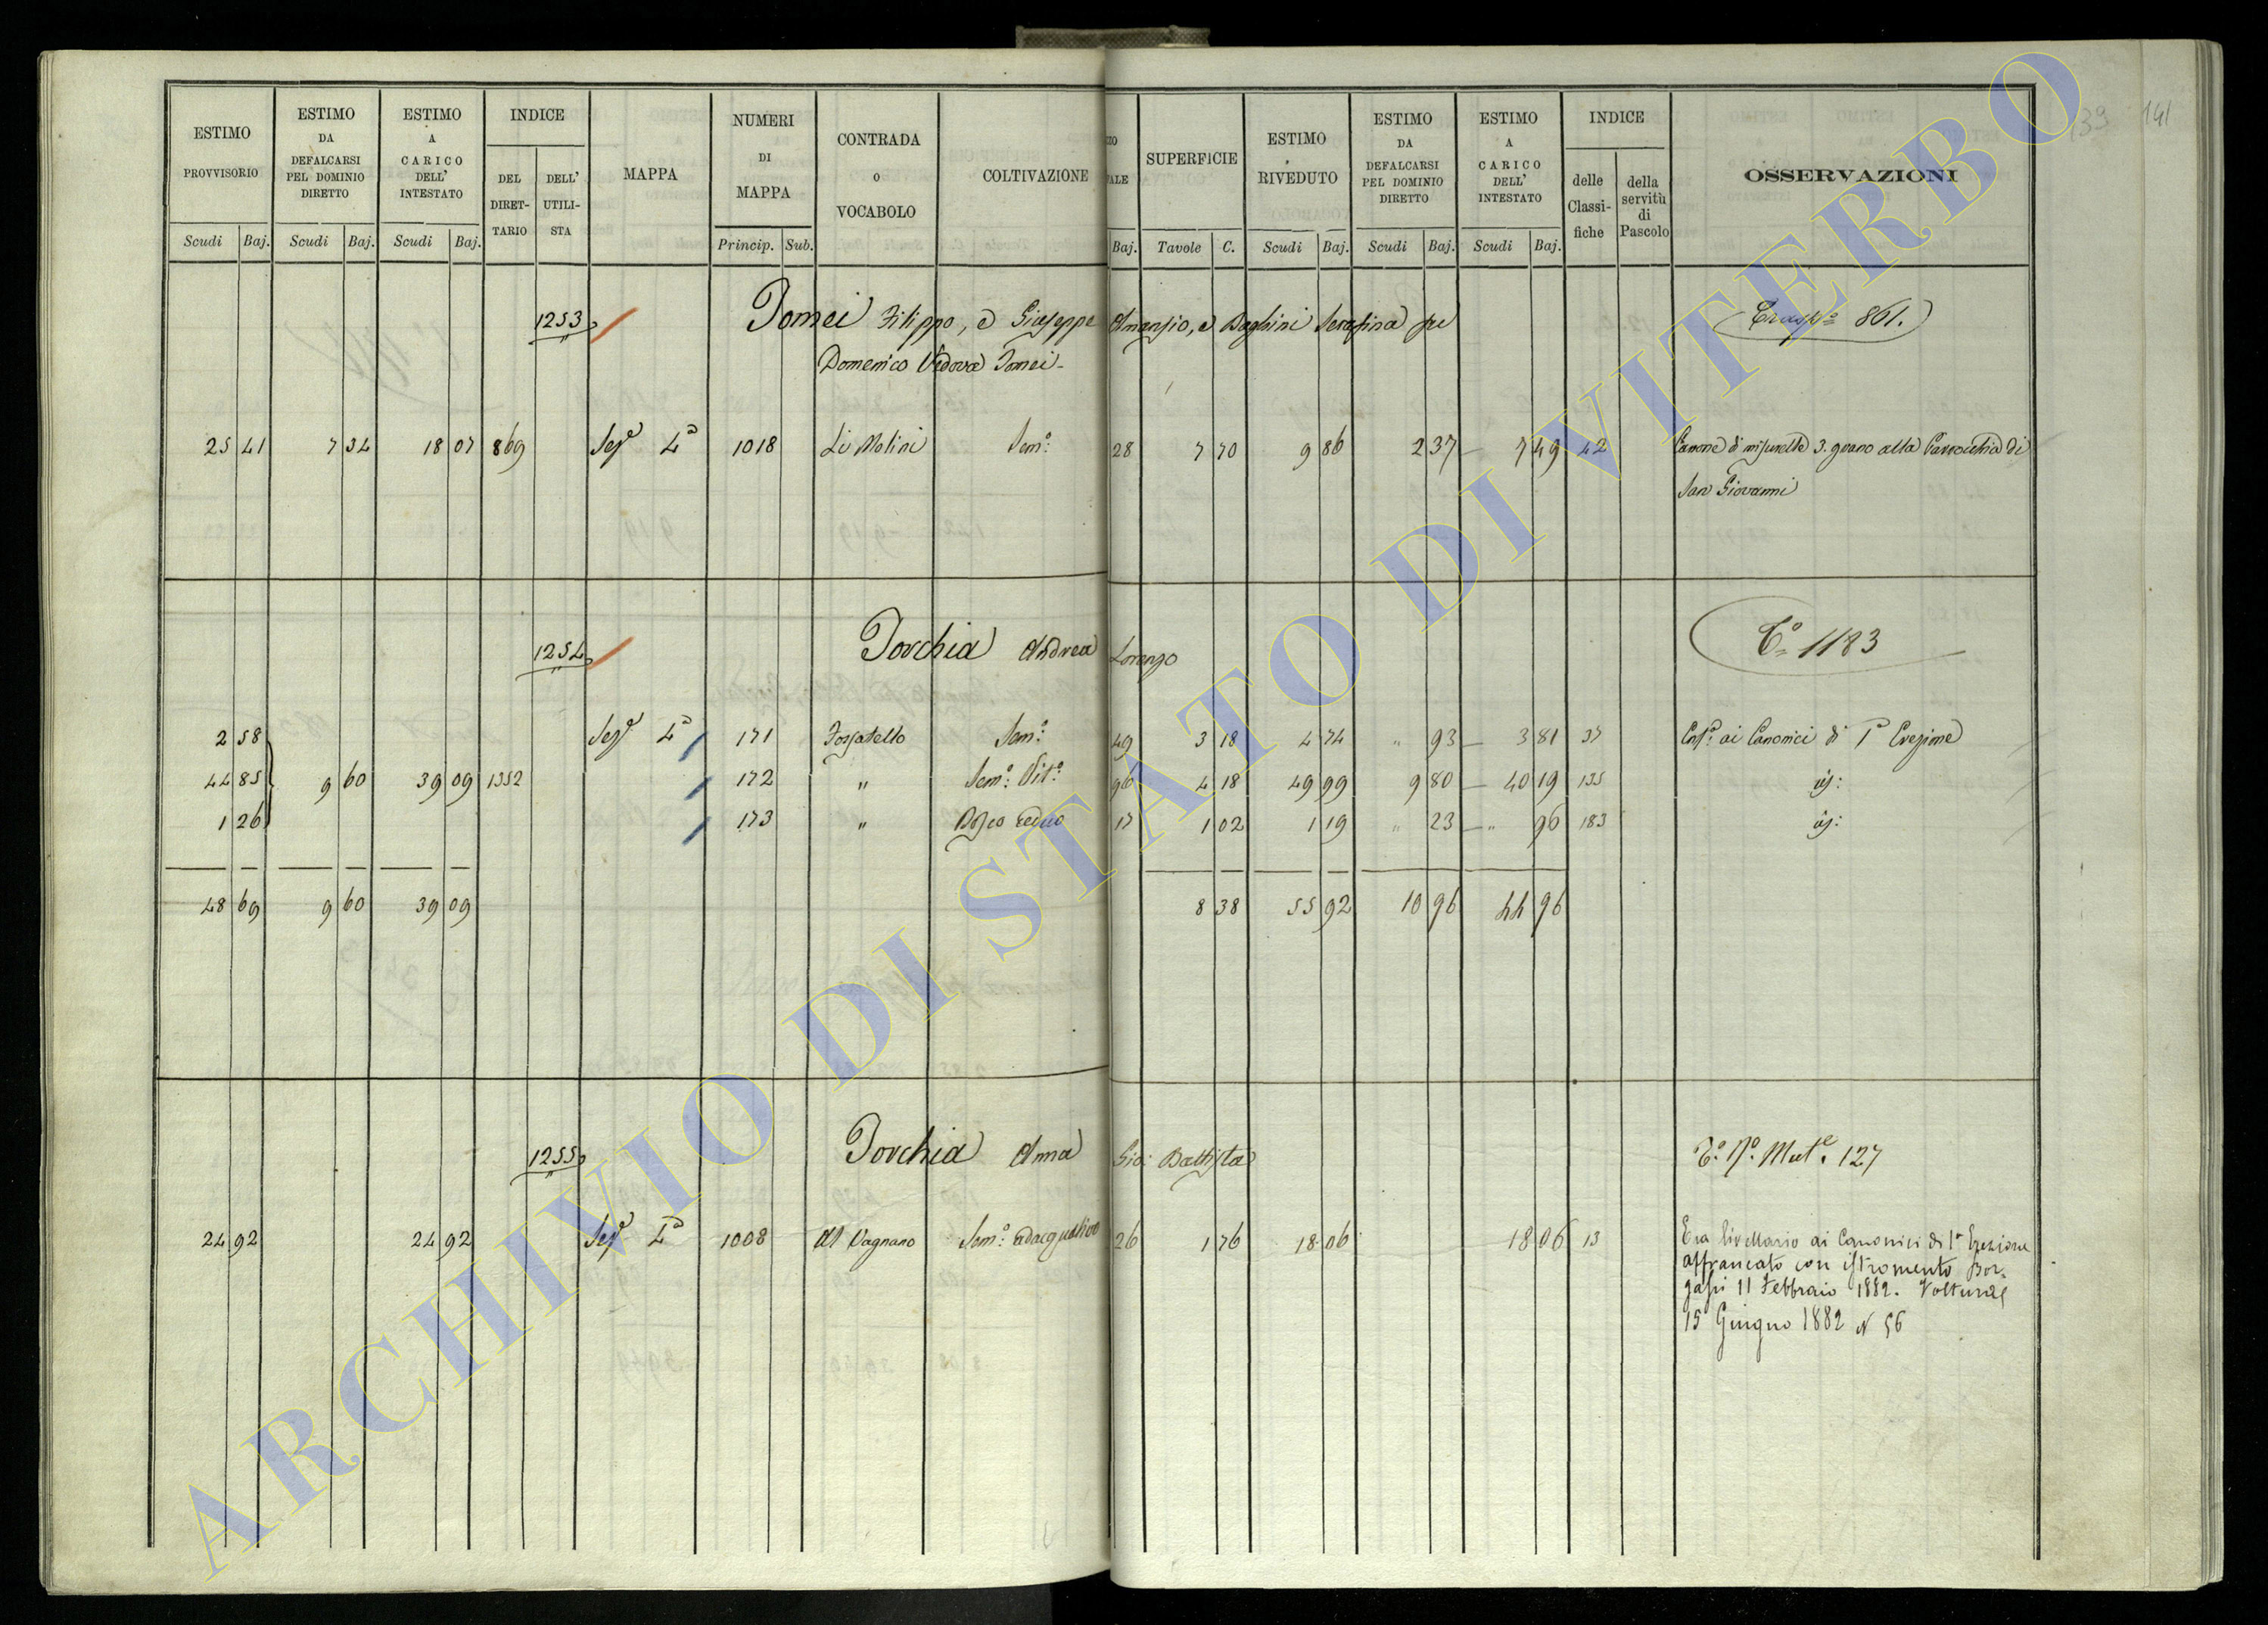 139 141
ESTIMO PROVVISORIO Scudi Baj.
ESTIMO DA DEFALCARSI PEL DOMINIO DIRETTO Scudi Baj.
ESTIMO A CARICO DELL' INTESTATO Scudi Baj.
INDICE DEL DIRET-TARIO DELL' UTILI-STA
MAPPA
NUMERI DI MAPPA Princip. Sub.
CONTRADA o VOCABOLO
COLTIVAZIONE
Baj.
SUPERFICIE Tavole C.
ESTIMO RIVEDUTO Scudi Baj.
ESTIMO DA DEFALCARSI PEL DOMINIO DIRETTO Scudi Baj.
ESTIMO A CARICO DELL' INTESTATO Scudi Baj.
INDICE delle Classi-fiche della servitù di Pascolo
OSSERVAZIONI
1253 Tomei Filippo, e Giuseppe Amanzio, e Baghini Serafina
861.
Domenico Vedova Tomei
25 41 7 34 18 07 869 Sez.e 4a 1018 Li Molini Sem.o 28 7 70 9 86 2 37 7 49 42 Canone di misurelle 3. grano alla Parrocchia di
San Giovanni
1254 Torchia Andrea Lorenzo
C.o 1183
2 58 Sez.e 4a 171 Fossatello Sem.o 49 3 18 4 74 " 93 3 81 37 Enf.a ai Canonici di 1a Erezione
44 85 9 60 39 09 1352 172 " Sem.o Vit.o 96 4 18 49 99 9 80 40 19 135
1 26 173 " Bosco Ceduo 17 1 02 1 19 " 23 " 96 183
48 69 9 60 39 09 8 38 55 92 10 96 44 96
1255 Torchia Anna Gio: Battista
T.o N.o Mut.e 127
24 92 24 92 Sez.e 4a 1008 Al Vagnano Sem.o adacquativo 26 1 76 18 06 18 06 13 Era livellario ai Canonici di 1a Erezione
affrancato con istromento Bor-
gassi 11 Febbraio 1882. Voltura
15 Giugno 1882 N 56
ARCHIVIO DI STATO DI VITERBO